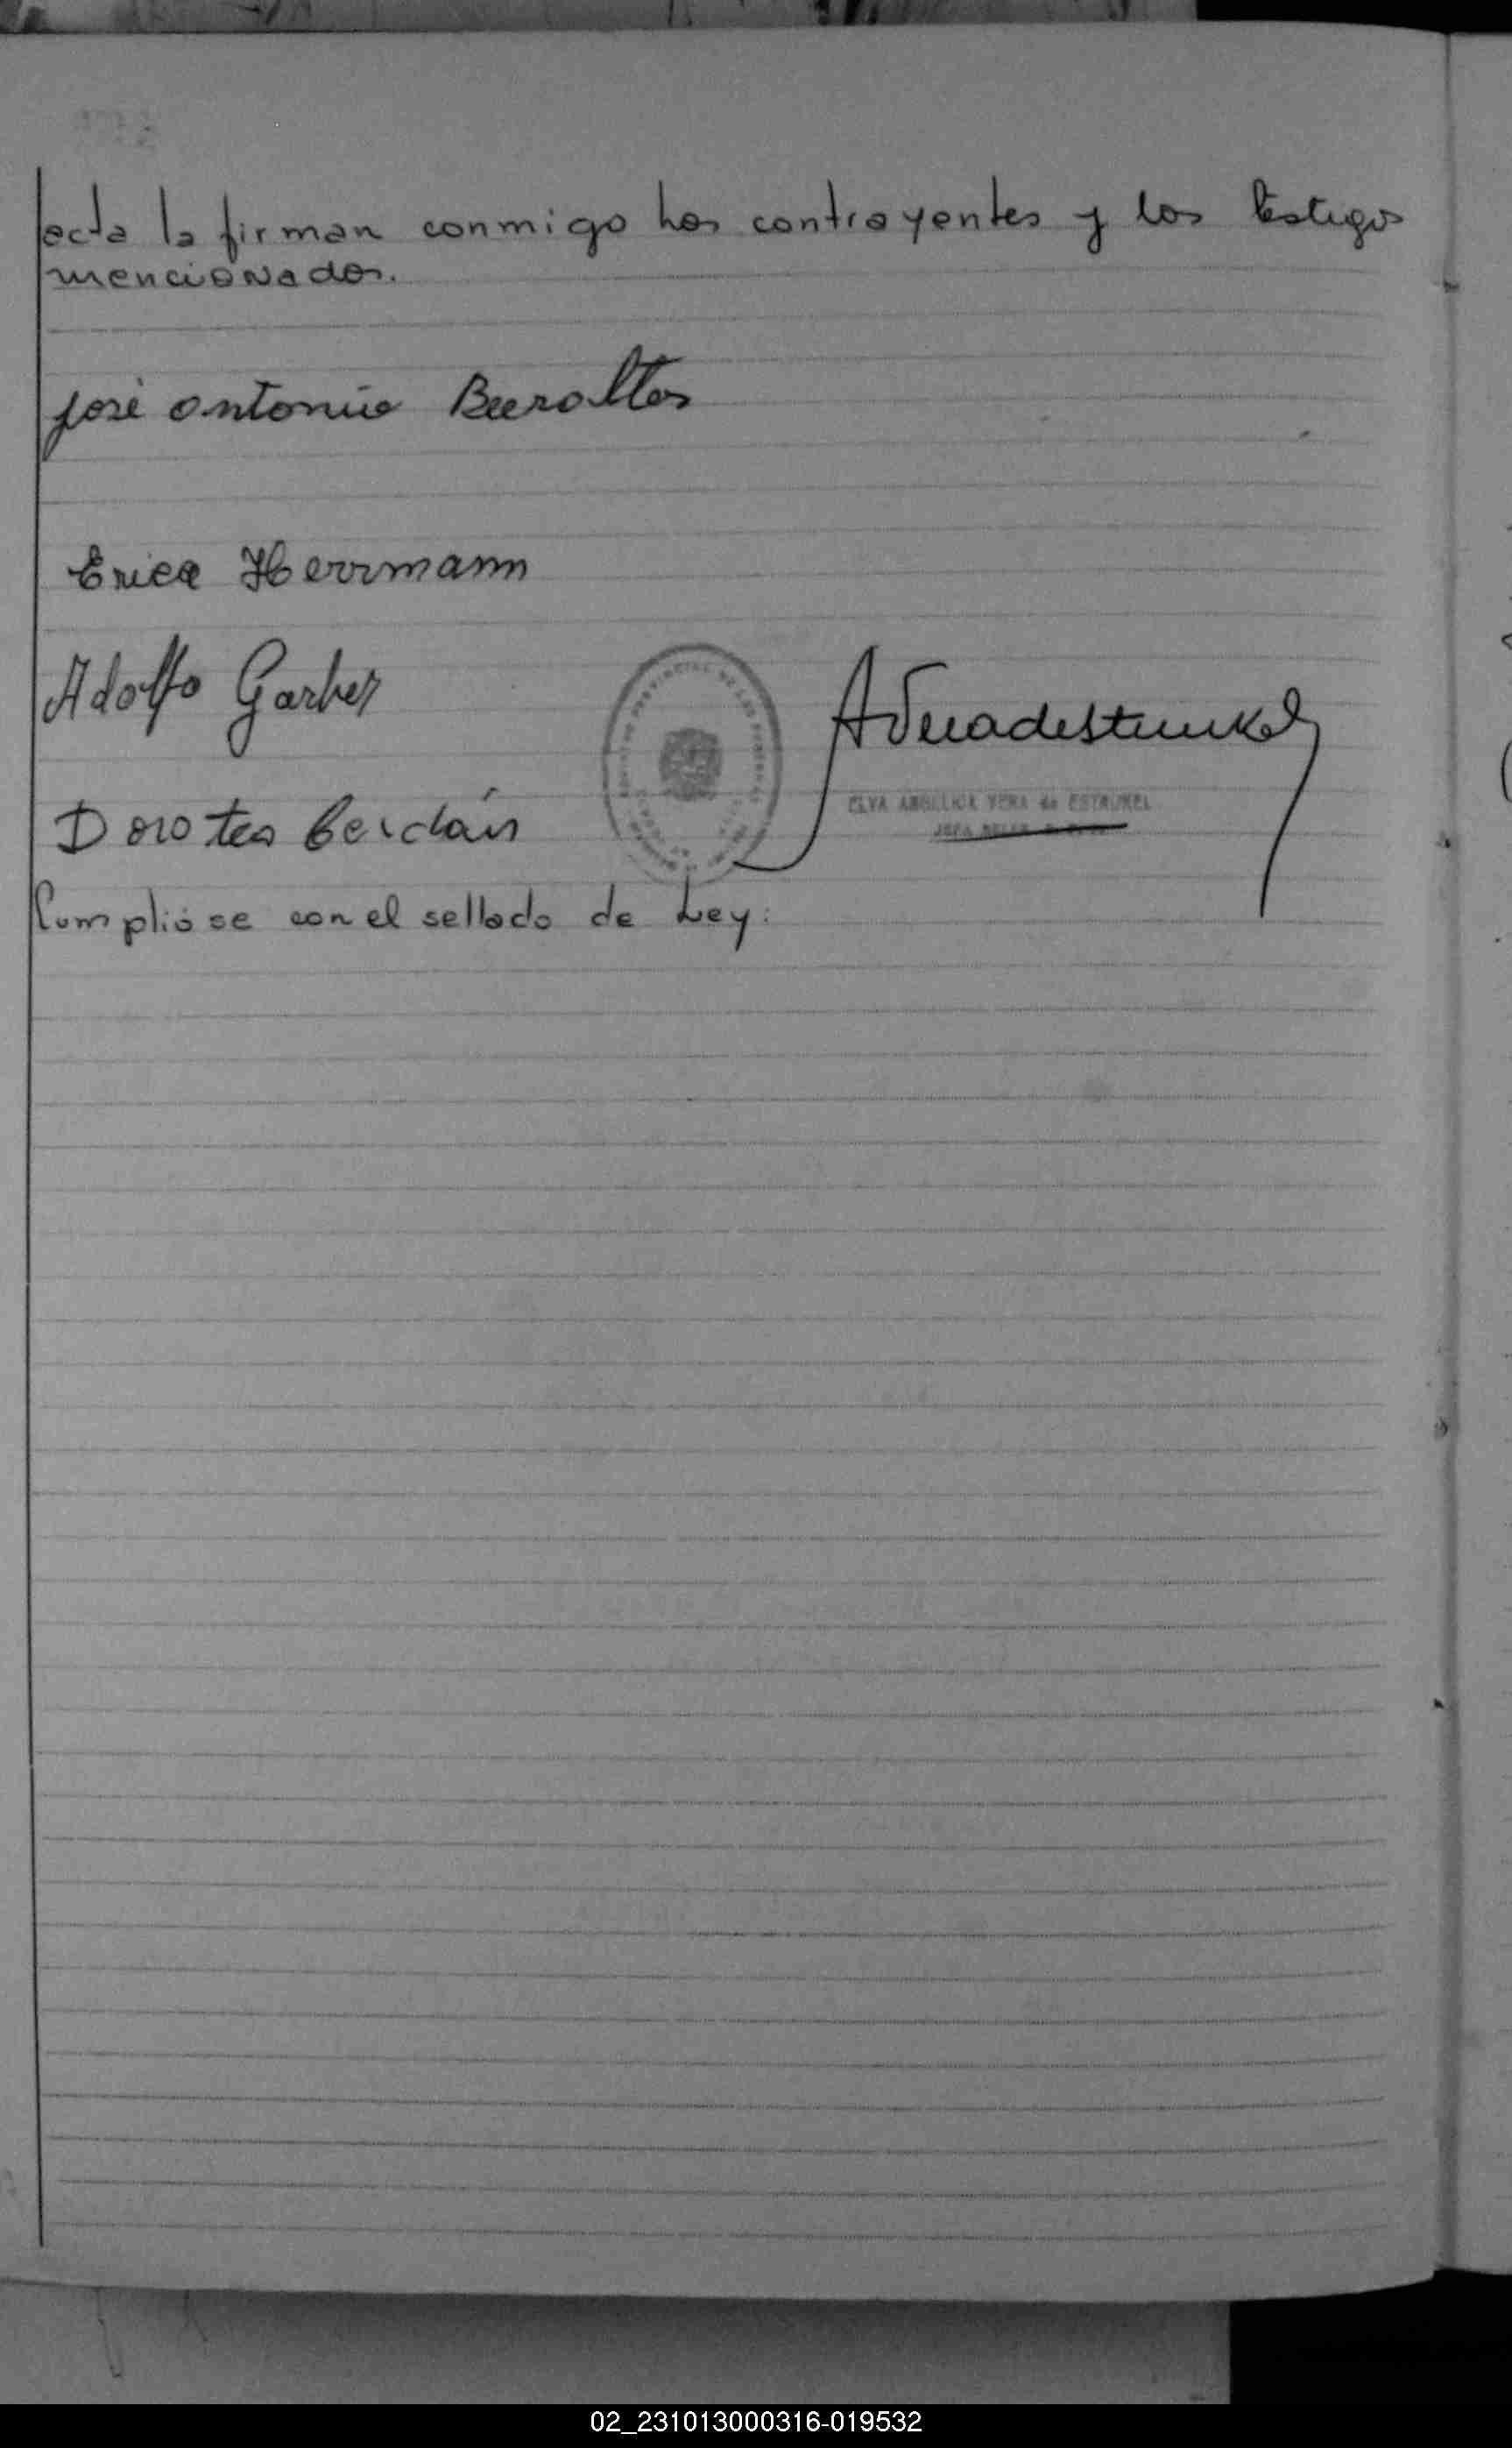 acta la firman conmigo los contrayentes y los testigos
mencionados.
José Antonio
Erica Herrmann
Adolfo Garber
Dorotea Cerdán
ELVA ANGELICA VERA de ESTRUKEL
Cumplió se con el sellado de Ley:
02_231013000316-019532